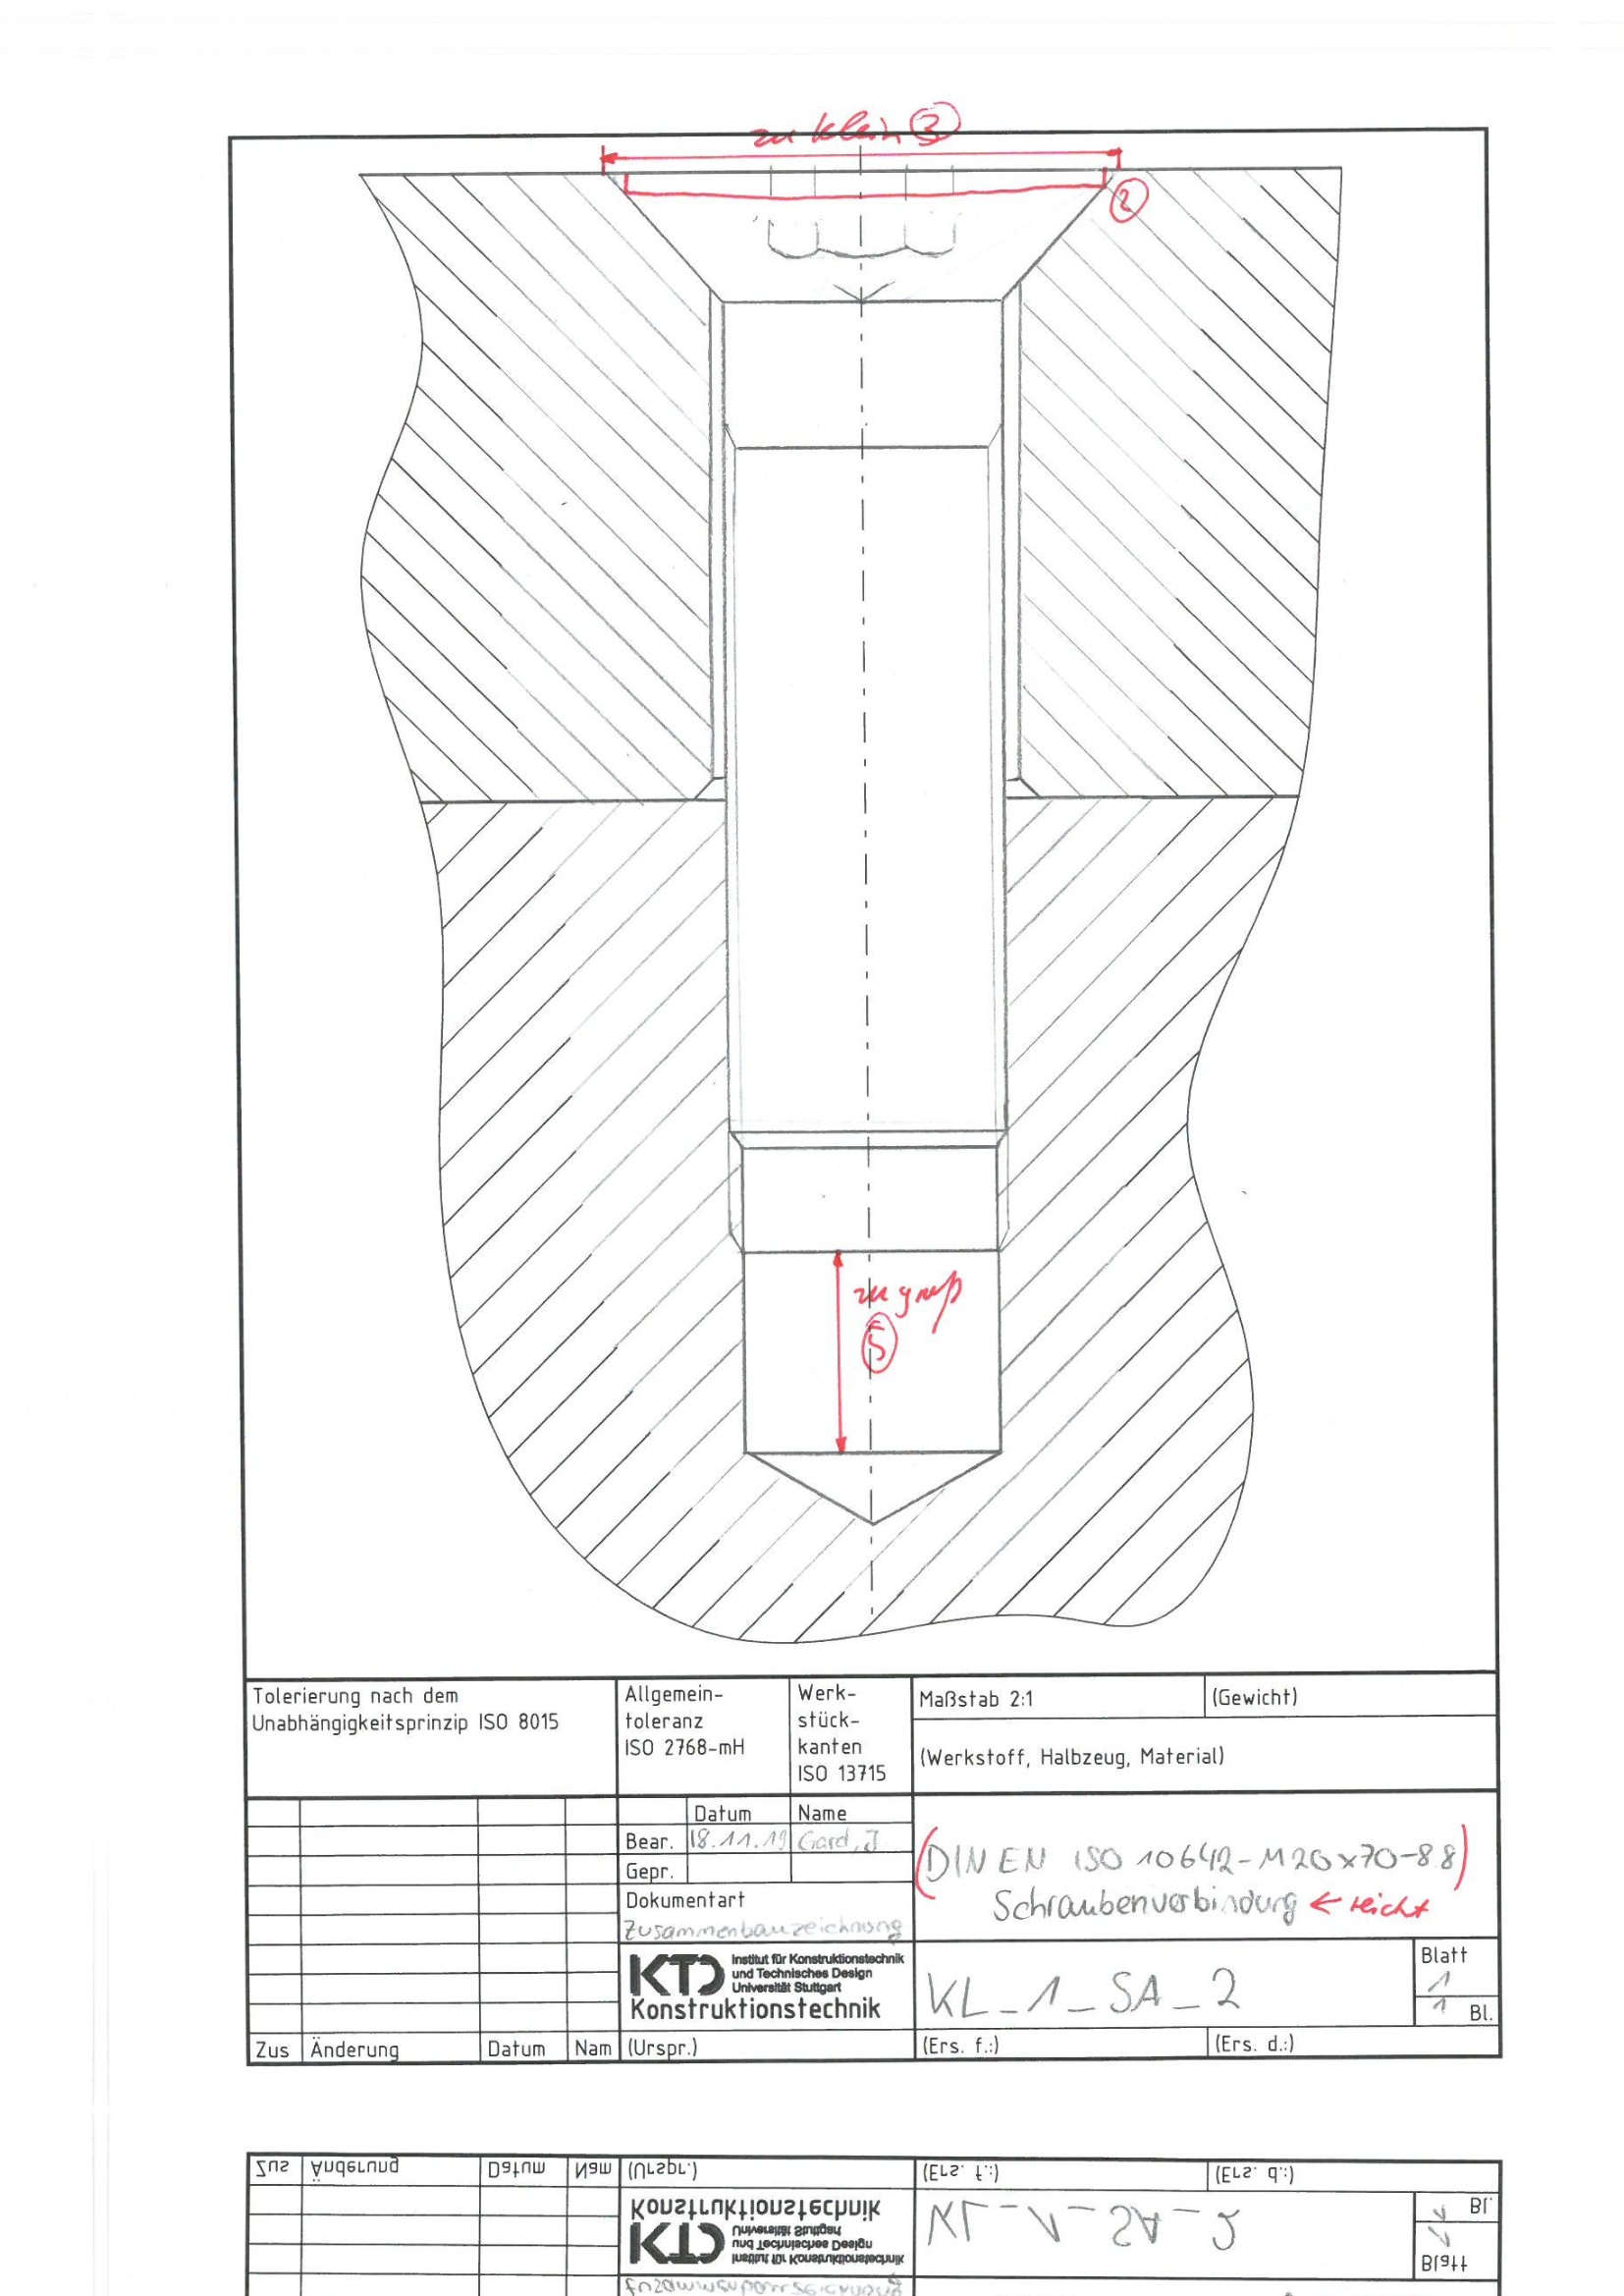 zu klein ③
②
zu groß
⑤
Tolerierung nach dem
Unabhängigkeitsprinzip ISO 8015
Allgemein-
toleranz
ISO 2768-mH
Werk-
stück-
kanten
ISO 13715
Maßstab 2:1
(Gewicht)
(Werkstoff, Halbzeug, Material)
Datum Name
Bear. 18.11.19 Gard, J
Gepr.
Dokumentart
Zusammenbauzeichnung
(DIN EN ISO 10642-M20x70-8.8)
Schraubenverbindung ← reicht
KTD
Institut für Konstruktionstechnik
und Technisches Design
Universität Stuttgart
Konstruktionstechnik
KL_1_SA_2
Blatt
1
1 Bl.
Zus Änderung Datum Nam (Urspr.) (Ers. f.:) (Ers. d.:)
Zus Änderung Datum Nam (Urspr.) (Ers. f.:) (Ers. d.:)
Konstruktionstechnik
KTD
Universität Stuttgart
und Technisches Design
Institut für Konstruktionstechnik
KL_1_SA_2
1 Bl.
1
Blatt
Zusammenbauzeichnung